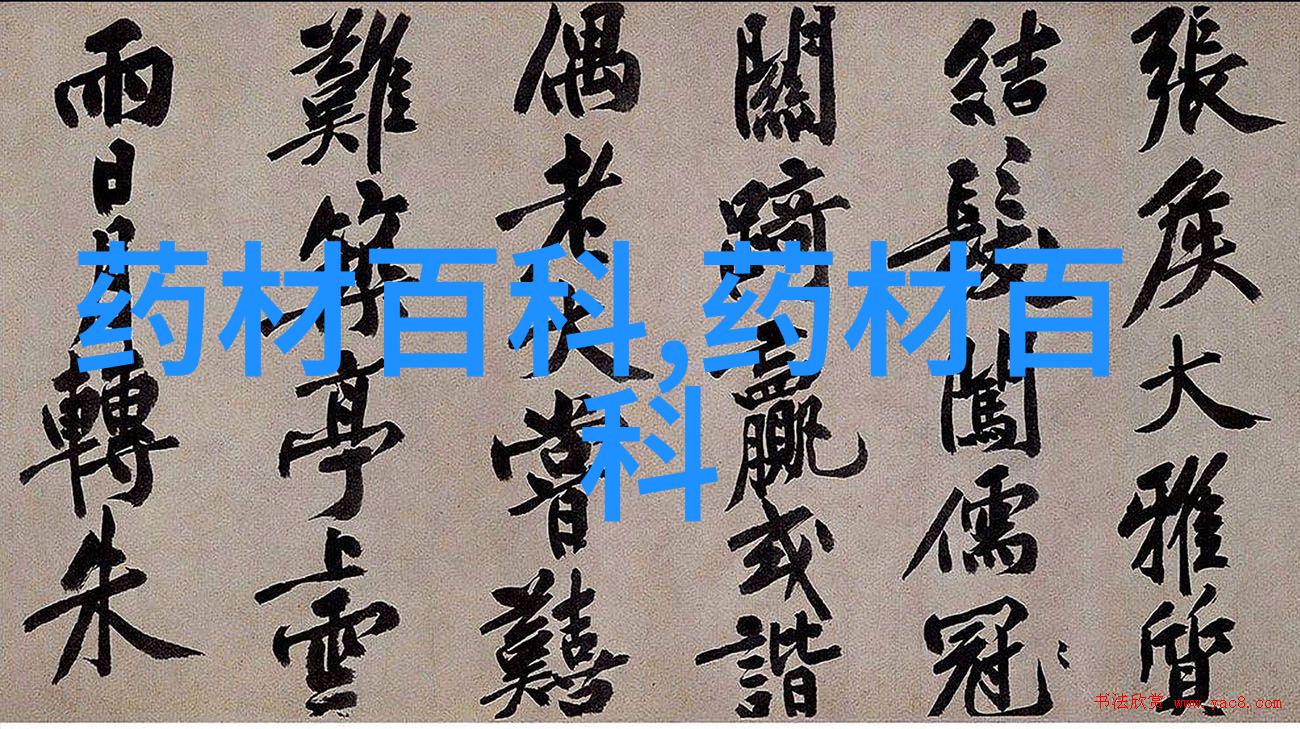 药材百科,药材百
科
張矦大雅質
結髮闖儒冠
關踦贏或諧
偶老夫嘗囏
難築亭上雲
雨日月轉朱
书法欣赏 www.yac8.com